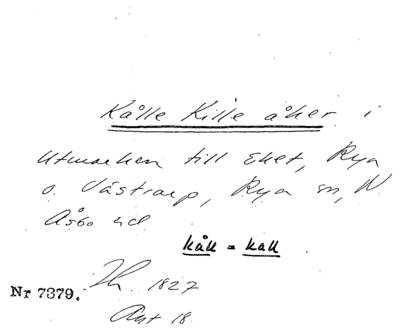 Kålle Kille åker i
utmarken till Eket, Rya
o. Västraep, Rya sn, N.
Åsbo hd.
kåll = kall
Nr 7379. 1827
Akt 18.